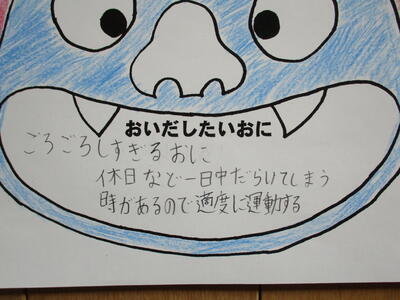 おいだしたいおに
ごろごろしすぎるおに
休日など一日中だらいてしまう
時があるので適度に運動する